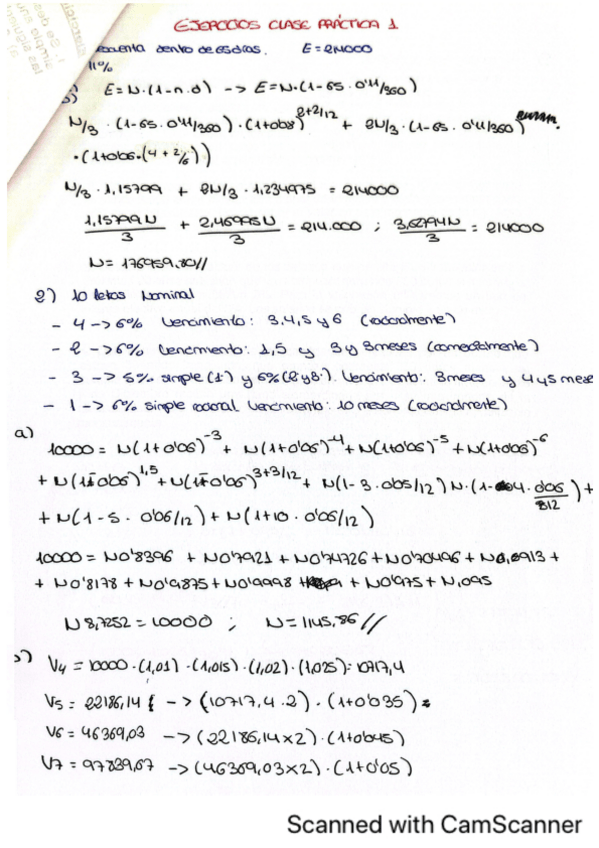 EJERCICIOS CLASE PRÁCTICA 1
cuenta dentro de escolras. E = 214000
11%
b) E = N·(1-n·d) -> E = N·(1-65·0'11/360)
N/3·(1-65·0'11/360)·(1+0'08)^2+2/12 + 2N/3·(1-65·0'11/360)
·(1+0'06·(4+2/6))
N/3·1,15799 + 2N/3·1,234975 = 214000
1,15799N/3 + 2,46995N/3 = 214.000 ; 3,62794N/3 = 214000
N = 176959,80//
2) 10 letras Nominal
- 4 -> 6% Vencimiento: 3,4,5 y 6 (racionalmente)
- 2 -> 6% Vencimiento: 1,5 y 3 y 3 meses (comercialmente)
- 3 -> 5% simple (1ª) y 6% (2 y 3ª). Vencimiento: 3 meses y 4 y 5 mese
- 1 -> 6% simple racional Vencimiento: 10 meses (racionalmente)
a)
10000 = N(1+0'06)^-3 + N(1+0'06)^-4 + N(1+0'06)^-5 + N(1+0'06)^-6
+ N(1-0'06)^1,5 + N(1-0'06)^3+3/12 + N(1-3·0'05/12) N·(1-4·0'06/12) +
+ N(1-5·0'06/12) + N(1+10·0'06/12)
10000 = N0'8396 + N0'7921 + N0'74726 + N0'70496 + N0,6913 +
+ N0'8178 + N0'9875 + N0'9998 + N0'975 + N,095
N 8,7252 = 10000 ; N = 1145,86//
b) V4 = 10000·(1,01)·(1,015)·(1,02)·(1,025) = 10717,4
V5 = 22186,14 -> (10717,4·2)·(1+0'035)
V6 = 46369,03 -> (22186,14x2)·(1+0'045)
V7 = 97839,67 -> (46369,03x2)·(1+0'05)
Scanned with CamScanner